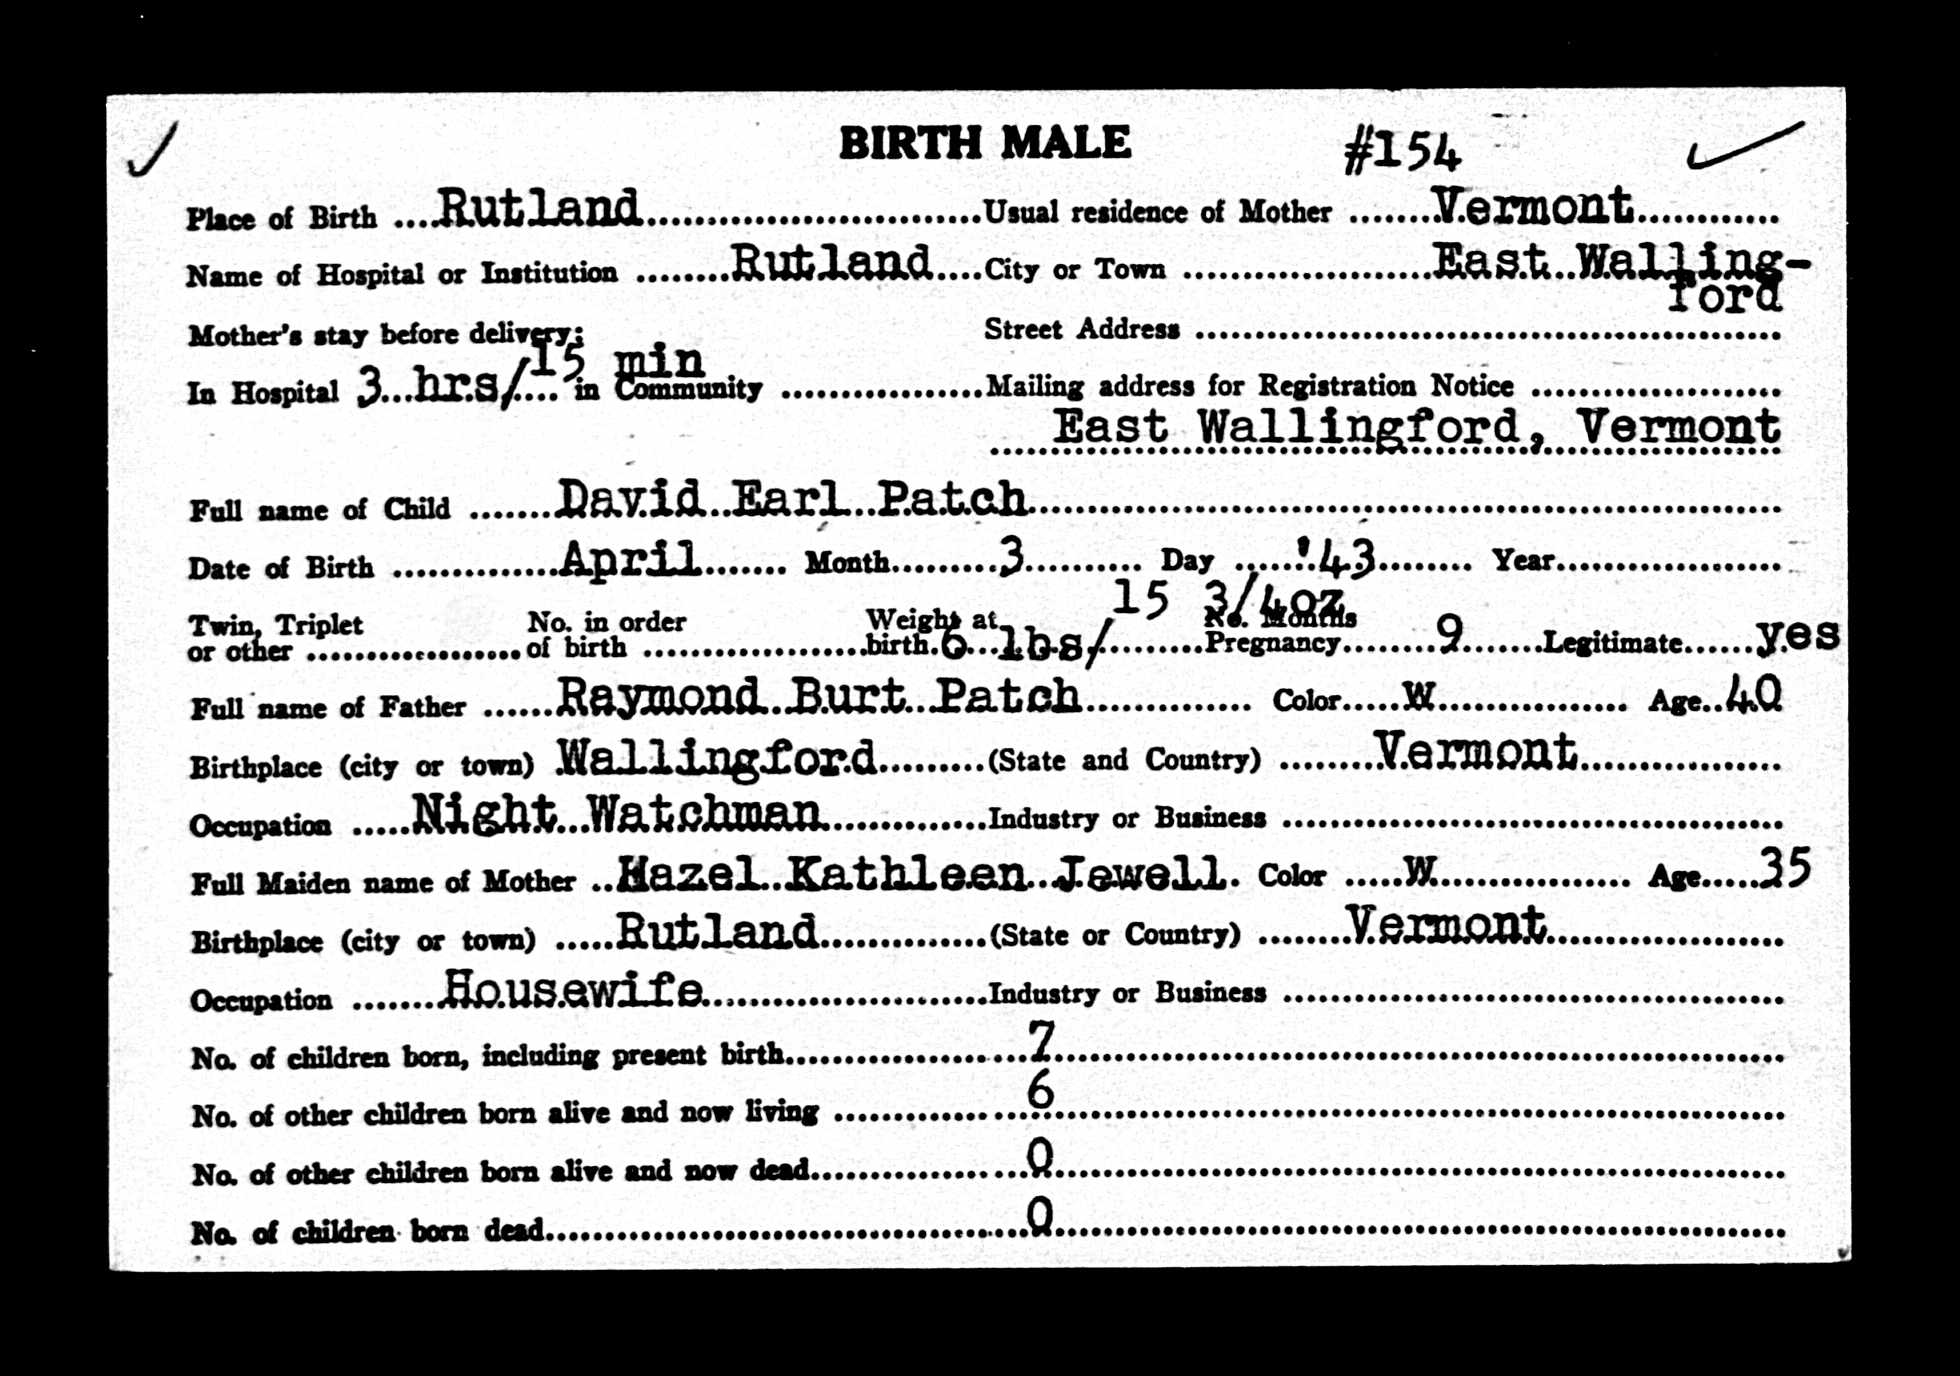 BIRTH MALE #154
Place of Birth ....Rutland............................Usual residence of Mother .......Vermont............
Name of Hospital or Institution ........Rutland....City or Town .....................East Walling-
ford
Mother's stay before delivery; Street Address .................................................
15 min
In Hospital 3...hrs/.... in Community .................Mailing address for Registration Notice .....................
East Wallingford, Vermont
Full name of Child .......David Earl Patch...............................................................
Date of Birth ..............April....... Month.........3.......... Day ......'43........ Year...................
15 3/4oz
Twin, Triplet No. in order Weight at No. Months
or other ..................of birth ...................birth.6...lbs/.........Pregnancy........9.......Legitimate......yes
Full name of Father ......Raymond Burt Patch.............. Color......W................ Age..40
Birthplace (city or town) .Wallingford.........(State and Country) ........Vermont.................
Occupation .....Night Watchman..............Industry or Business ..........................................
Full Maiden name of Mother ..Hazel Kathleen Jewell. Color .....W................. Age.....35
Birthplace (city or town) .....Rutland..............(State or Country) ........Vermont....................
Occupation .......Housewife........................Industry or Business ..........................................
No. of children born, including present birth....................7.............................................................
No. of other children born alive and now living ................6.............................................................
No. of other children born alive and now dead..................0.............................................................
No. of children born dead........................................0.............................................................